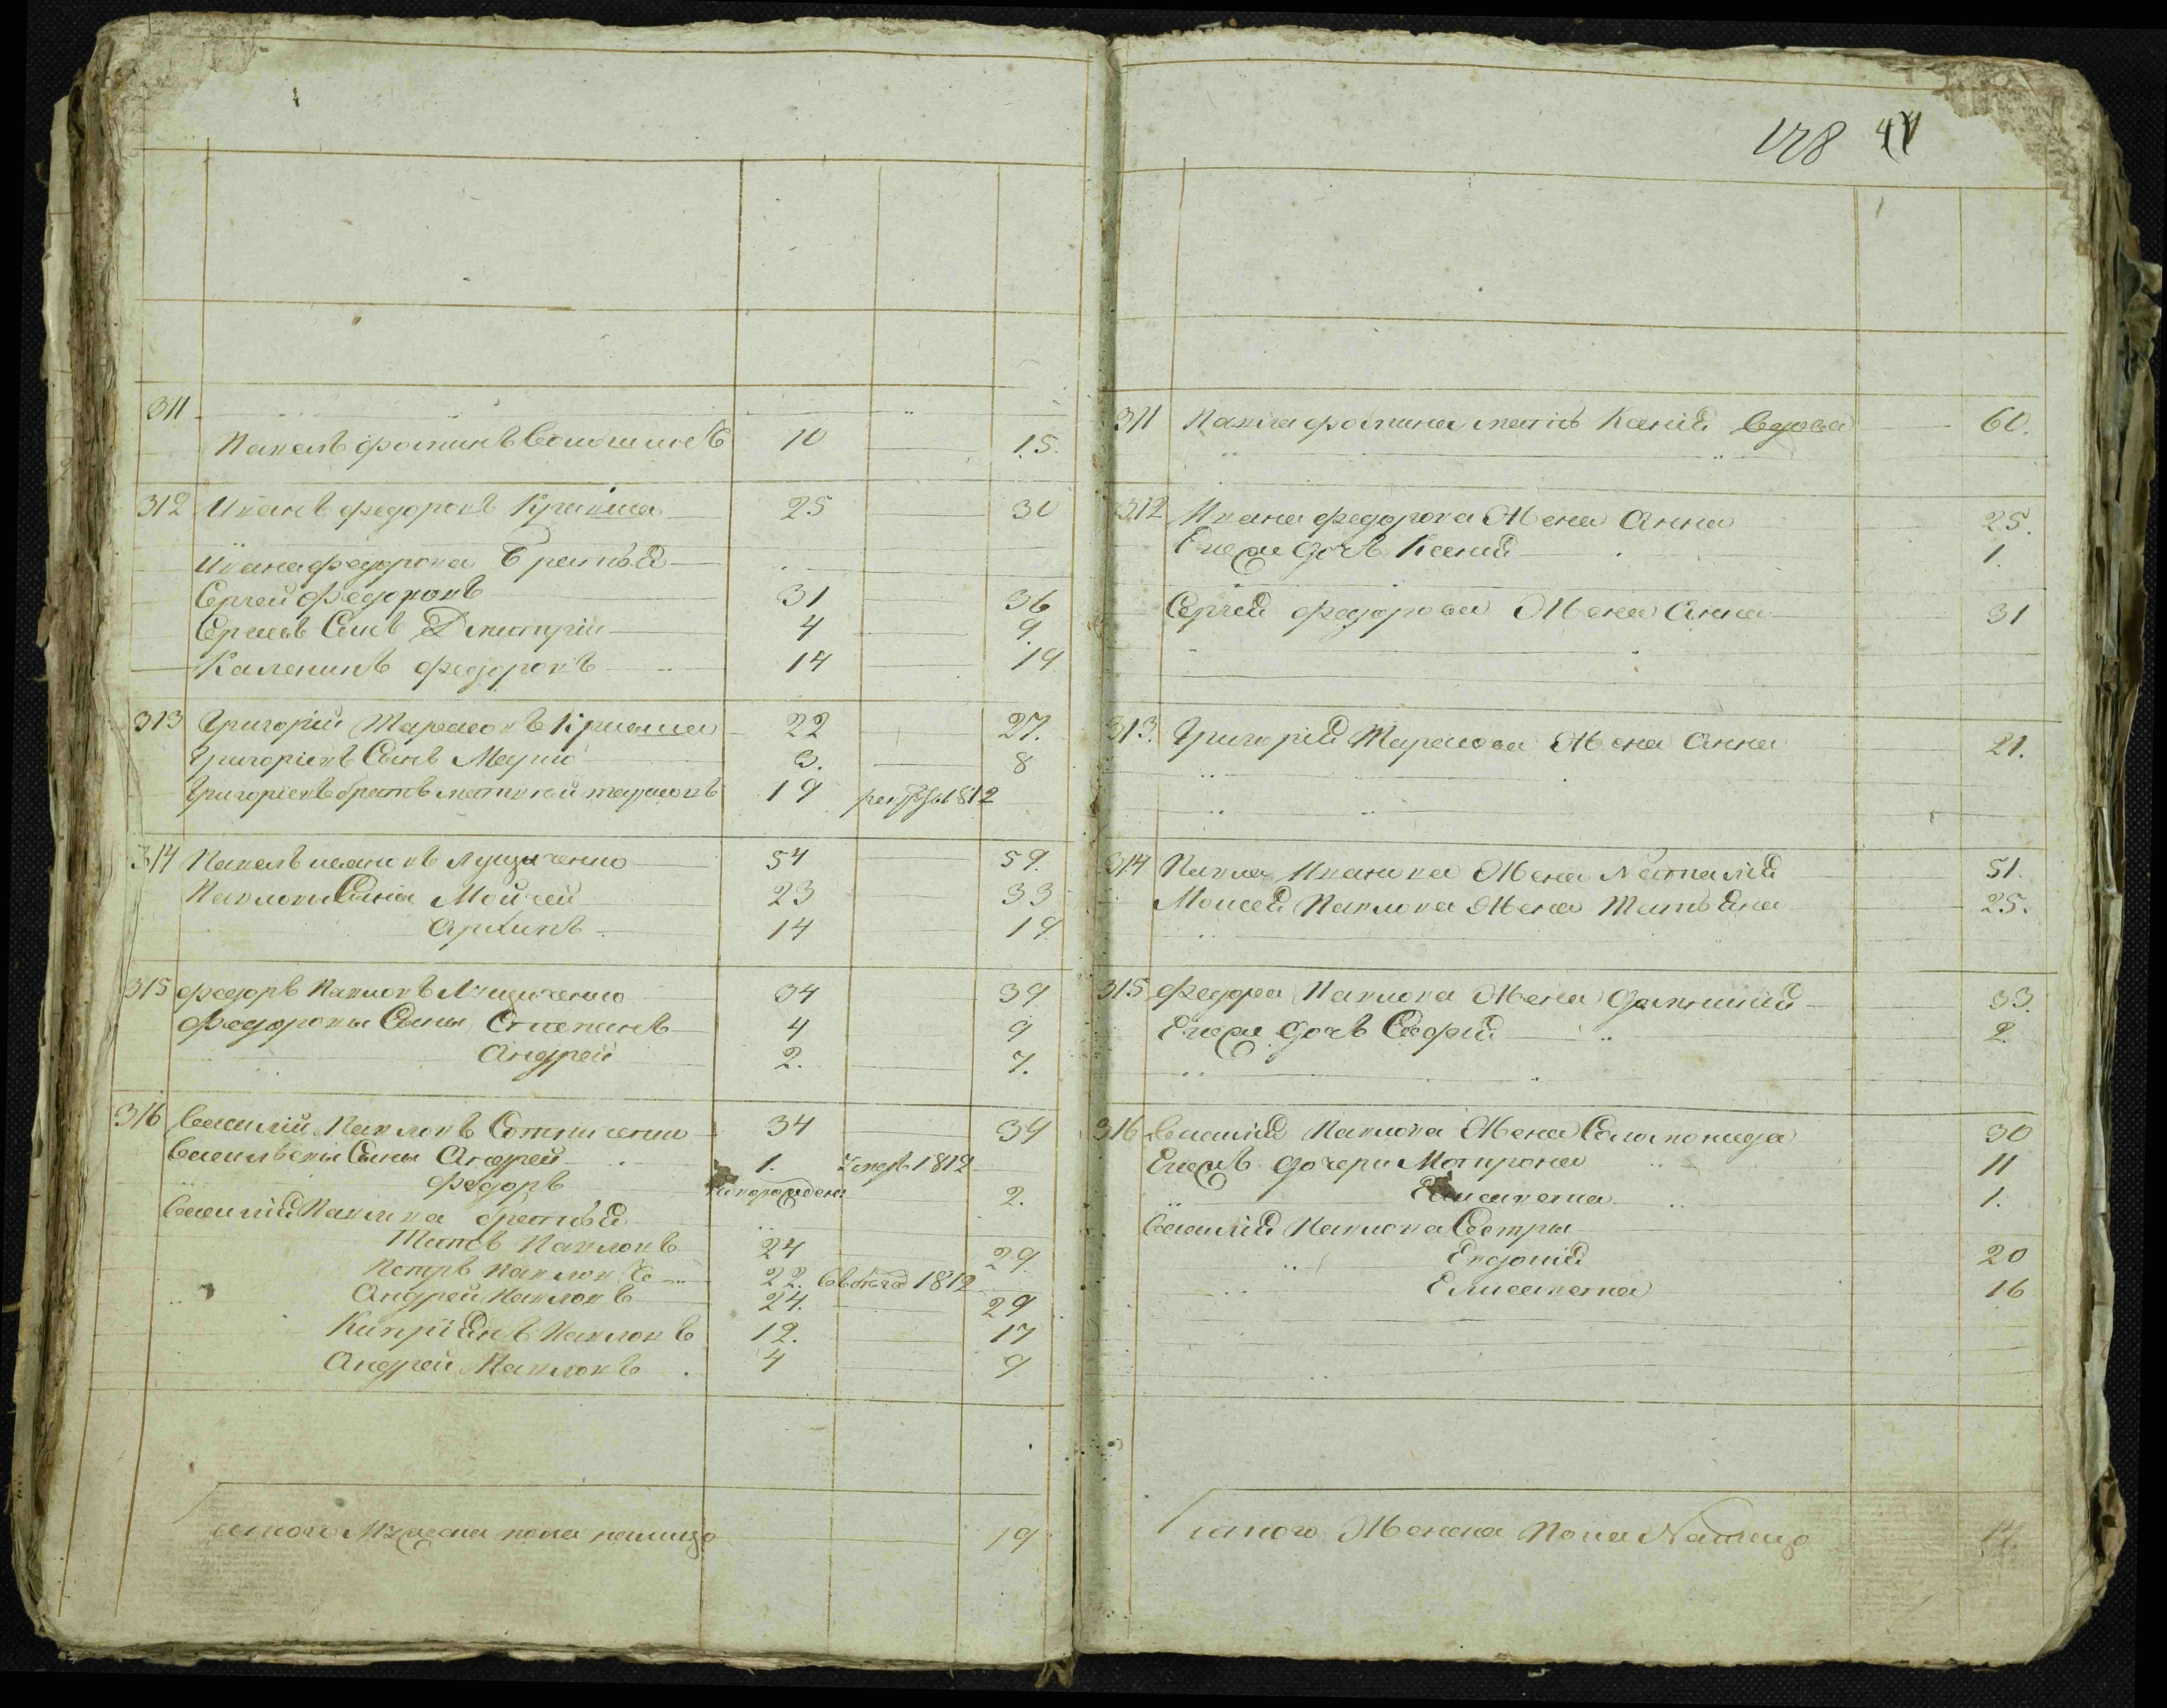 128 41
311
Павелъ Фоминъ Волошинъ 10 15.
312 Иванъ Федоровъ Кривша 25 30
Ивана Федорова Братья
Сергей Федоровъ 31 36
Сергеевъ Сынъ Дмитрій 4 9.
Каленикъ Федоровъ 14 19
313 Григорій Тарасовъ Кривша 22 27.
Григоріевъ Сынъ 3. 8
Григоріевъ братъ тарасовъ 19 1812
314 Павелъ ивановъ Лущиченко 54 59.
Павловы Сына Мойсей 23 33
Архипъ 14 19.
315 Федоръ Павловъ Лущиченко 34 39
Федоровы Сыны Степанъ 4 9
Андрей 2. 7.
316 Василій Павловъ 34 39
Васильевы Сыны Андрей 1. умеръ 1812
Федоръ новорожденъ 2.
Василія Павлова братья
Титъ Павловъ 24 29
Петръ Павловъ 22. 1812
Андрей Павловъ 24. 29
Кипріянъ Павловъ 12. 17
Андрей Павловъ 4 9
итого Мужеска пола налицо 19
311 Павла Фомина мать Ксенія вдова 60.
312 Ивана Федорова Жена Анна 25.
Ее же дочь Ксенія 1.
Сергея Федорова Жена Анна 31
313. Григорія Тарасова Жена Анна 21.
314 Павла Иванова Жена Наталія 51.
Моисея Павлова Жена Татьяна 25.
315 Федора Павлова Жена 33.
Ее же дочь Софія 2
316 Василія Павлова Жена Соломонида 30
Ее же дочери Мотрона 11
Елисавета 1.
Василія Павлова Сестры
Евдокія 20
Елисавета 16
итого Женска Пола Налицо 14.